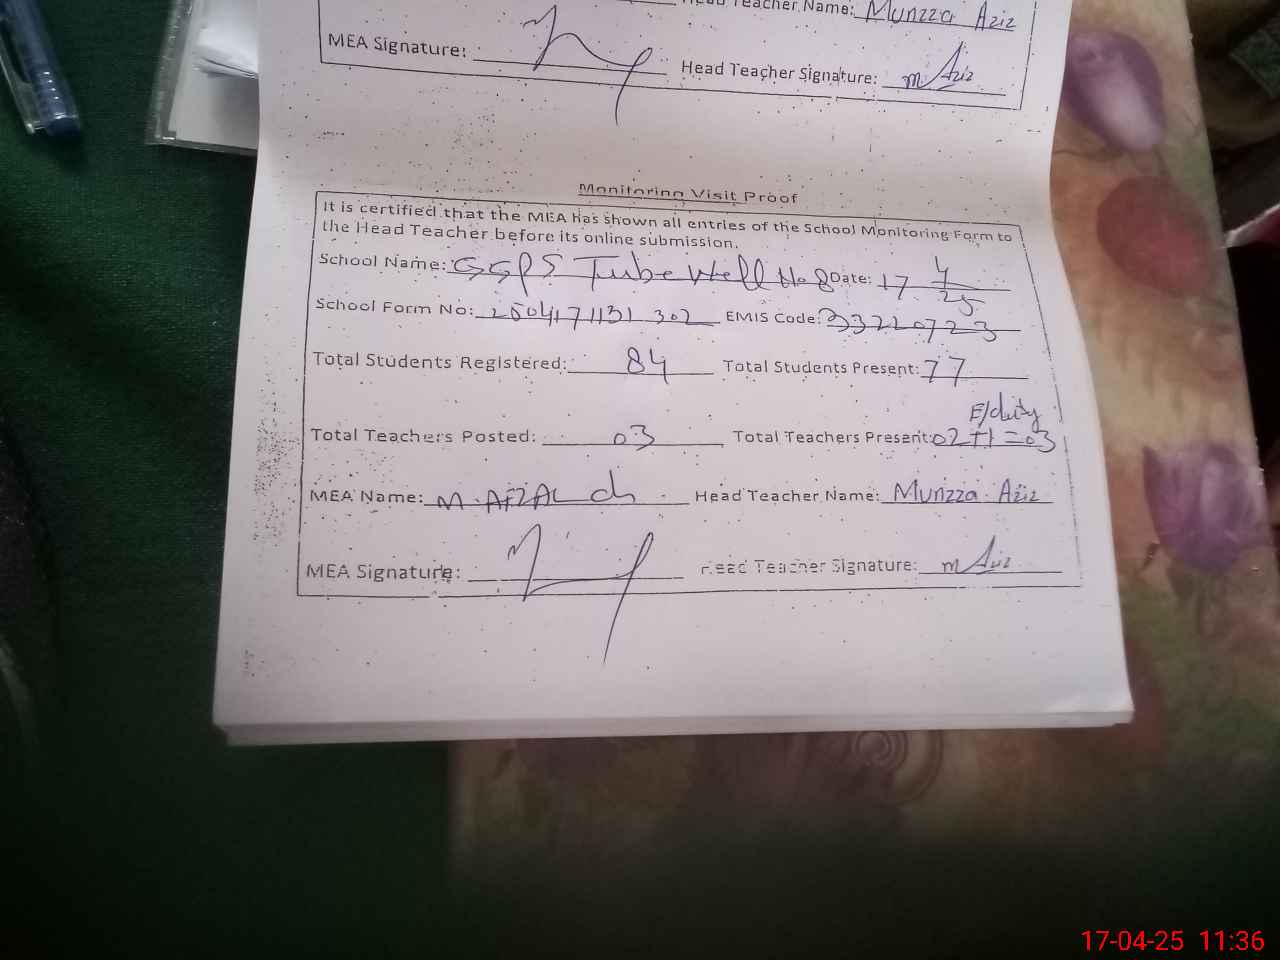 Head Teacher Name: Munzza Aziz
MEA Signature: Head Teacher Signature: m Aziz
Monitoring Visit Proof
It is certified that the MEA has shown all entries of the School Monitoring Form to
the Head Teacher before its online submission.
School Name: GGPS Tube Well No. 8 Date: 17 4/25
School Form No: 2504171131 302 EMIS Code: 33220723
Total Students Registered: 84 Total Students Present: 77
E/duty
Total Teachers Posted: 03 Total Teachers Present: 02+1=03
MEA Name: M. AFZAL ch Head Teacher Name: Munzza Aziz
MEA Signature: Head Teacher Signature: m Aziz
17-04-25 11:36